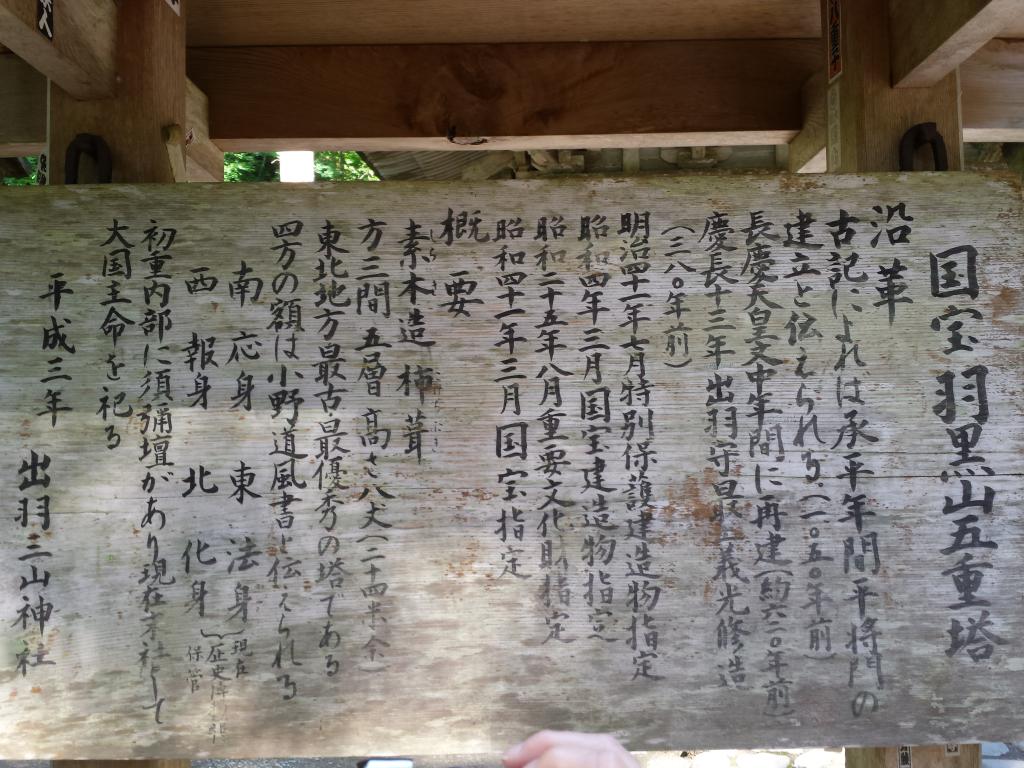 国宝羽黒山五重塔
沿革
古記によれば承平年間平将門の
建立と伝えられる(一〇五〇年前)
長慶天皇文中年間に再建(約六二〇年前)
慶長十三年出羽守最上義光修造
(三八〇年前)
明治四十一年七月特別保護建造物指定
昭和四年三月国宝建造物指定
昭和二十五年八月重要文化財指定
昭和四十一年三月国宝指定
概要
素木造 杮葺
方三間 五層 高さ八丈(二十四米余)
東北地方最古最優秀の塔である
四方の額は小野道風書と伝えられる
南 応身 東 法身
西 報身 北 化身
現在
保管
初重内部に須弥壇があり現在末社として
大国主命を祀る
平成三年 出羽三山神社